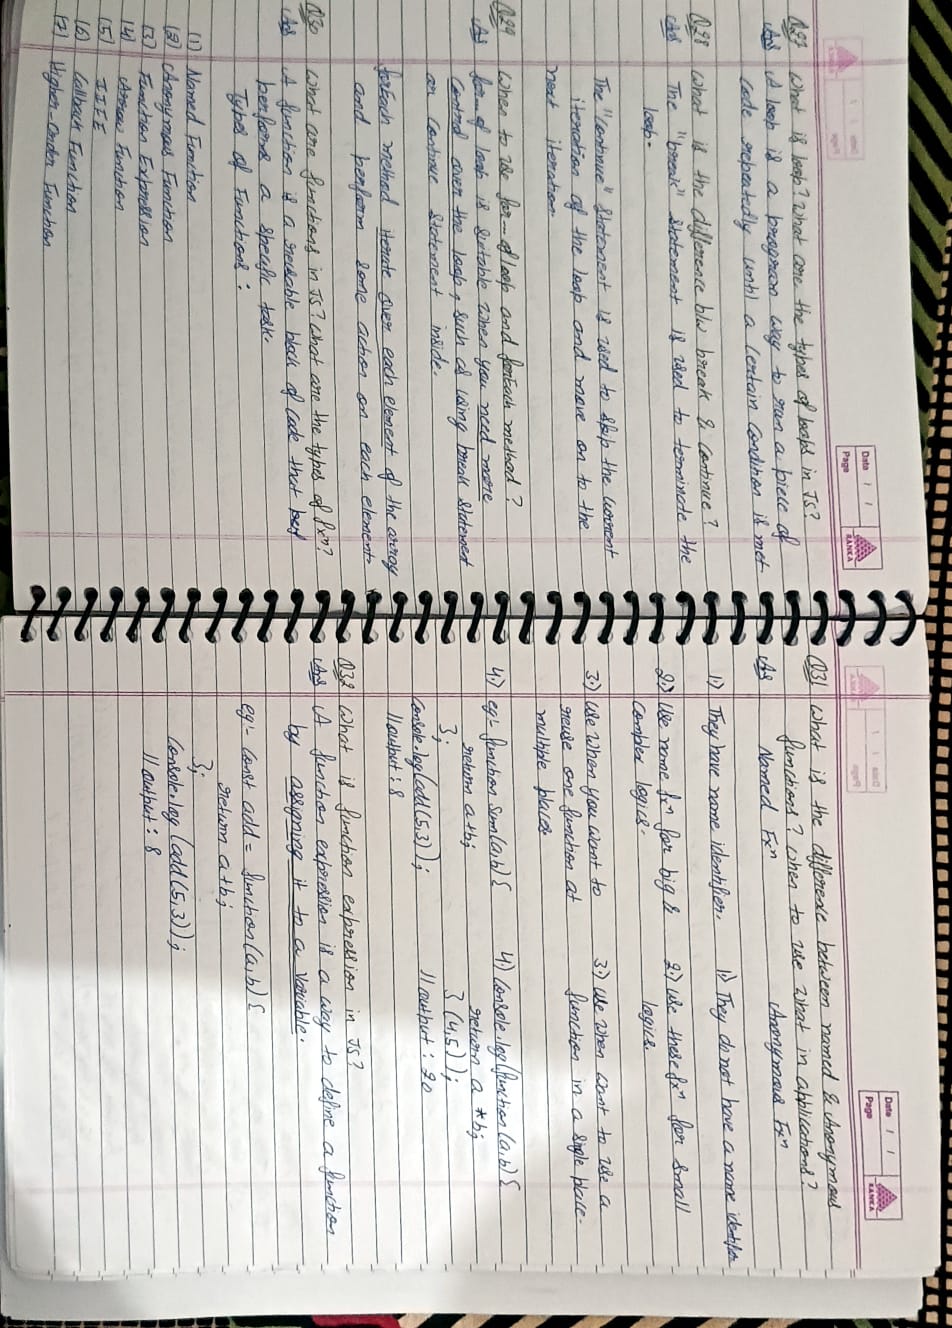 Date
Page
RANKA
Q27 What is loop? What are the types of loops in JS?
Ans A loop is a program way to run a piece of
code repeatedly until a certain condition is met.
Q28 What is the difference b/w break & continue?
Ans The "break" statement is used to terminate the
loop.
The "continue" statement is used to skip the current
iteration of the loop and move on to the
next iteration.
Q29 When to use for-of loop and forEach method?
Ans for-of loop is suitable when you need more
control over the loop, such as using break statement
or continue statement inside.
forEach method iterate over each element of the array
and perform some action on each element.
Q30 What are functions in JS? What are the types of fxⁿ?
Ans A function is a reusable block of code that
performs a specific task.
Types of Functions:
(1) Named Function
(2) Anonymous Function
(3) Function Expression
(4) Arrow Function
(5) IIFE
(6) Callback Function
(7) Higher-order Function
Date
Page
RANKA
Q31 What is the difference between named & Anonymous
functions? When to use what in applications?
Ans Named Fxⁿ Anonymous Fxⁿ
1) They have name identifier. 1) They do not have a name identifier
2) Use name fxⁿ for big & 2) use these fxⁿ for small
complex logics. logics.
3) Use when you want to 3) use when want to use a
reuse one function at function in a single place.
multiple places
4) eg:- function sum(a,b){ 4) console.log(function(a,b){
return a+b; return a*b;
}; }(4,5));
console.log(add(5,3)); //output: 20
//output: 8
Q32 What is function expression in JS?
Ans A function expression is a way to define a function
by assigning it to a variable.
eg:- const add = function(a,b){
return a+b;
};
console.log(add(5,3));
//output: 8